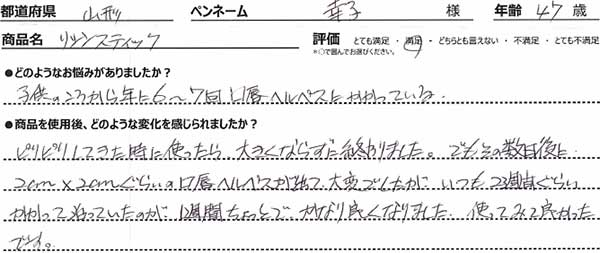 都道府県 山形 ペンネーム 幸子 様 年齢 47 歳
商品名 リジュンスティック 評価 とても満足 ・ 満足 ・ どちらとも言えない ・ 不満足 ・ とても不満足
*○で囲んでお選びください。
●どのようなお悩みがありましたか？
子供のころから年に6〜7回口唇ヘルペスにかかっている。
●商品を使用後、どのような変化を感じられましたか？
ピリピリしてきた時に使ったら、大きくならずに終わりました。でもその数日後に
2cm×2cmぐらいの口唇ヘルペスが出て大変でしたが、いつも2週間ぐらい
かかって治っていたのが1週間ちょっとでかなり良くなりました。使ってみて良かった
です。